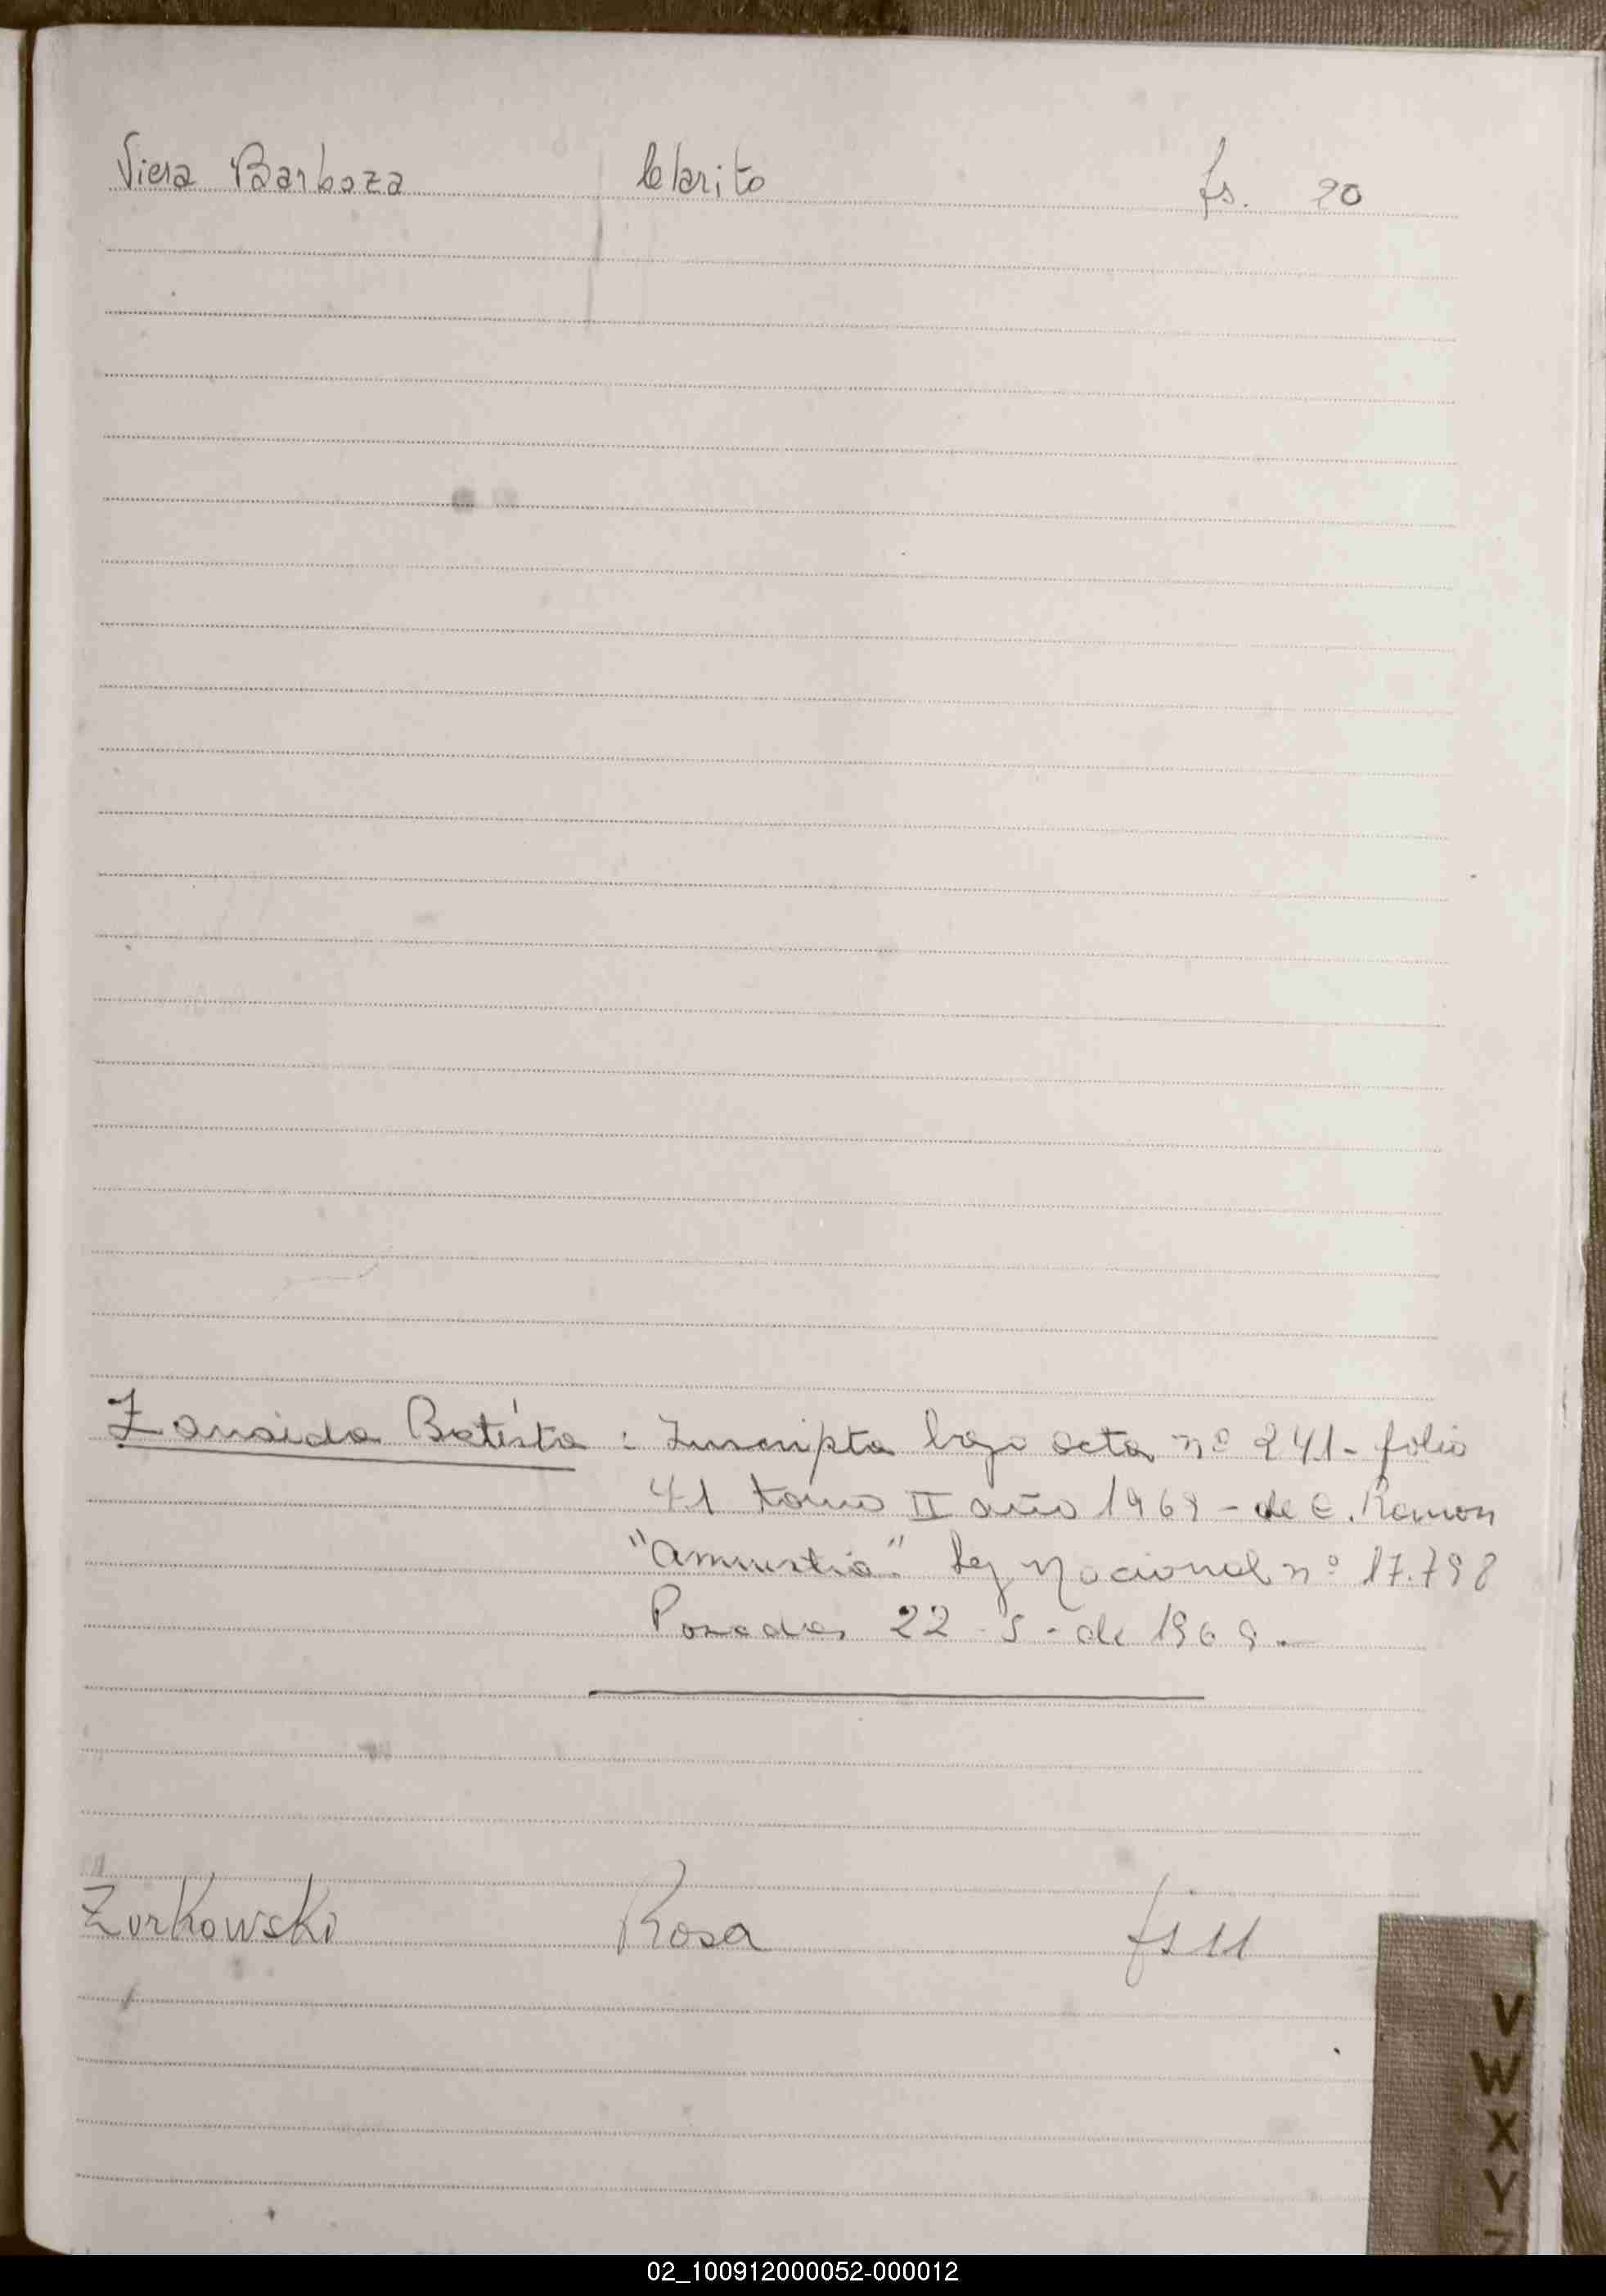 Viera Barboza Clarito fs. 20
Zanaida Batista : Inscripta bajo acta nº 241- folio
41 tomo II año 1969 - de C. Ramon
"amnistia" Ley Nacional nº 17.798
Posadas 22 - 5 - de 1969.-
Zurkowski Rosa fs 11
V
W
X
Y
Z
02_100912000052-000012